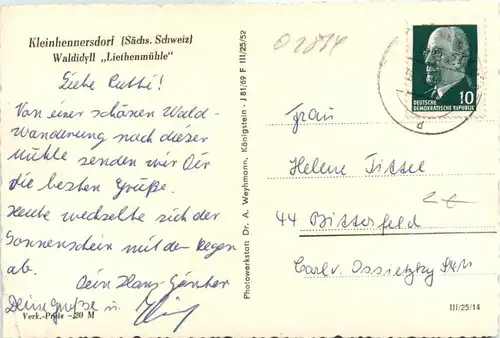 Kleinhennersdorf (Sächs. Schweiz)
Waldidyll „Liethenmühle“
Liebe Mutti!
Von einer schönen Wald-
Wanderung nach dieser
Mühle senden wir Dir
die besten Grüße.
Heute wechselte sich der
Sonnenschein mit dem Regen
ab.
Dein Hans-Günther
Verk.-Preis -,20 M
Photowerkstatt Dr. A. Weyhmann, Königstein · J 81/69 F III/25/52
DEUTSCHE
DEMOKRATISCHE REPUBLIK
10
Frau
Helene Tittel
44 Bitterfeld
Carl v. Ossietzky Str.
III/25/14